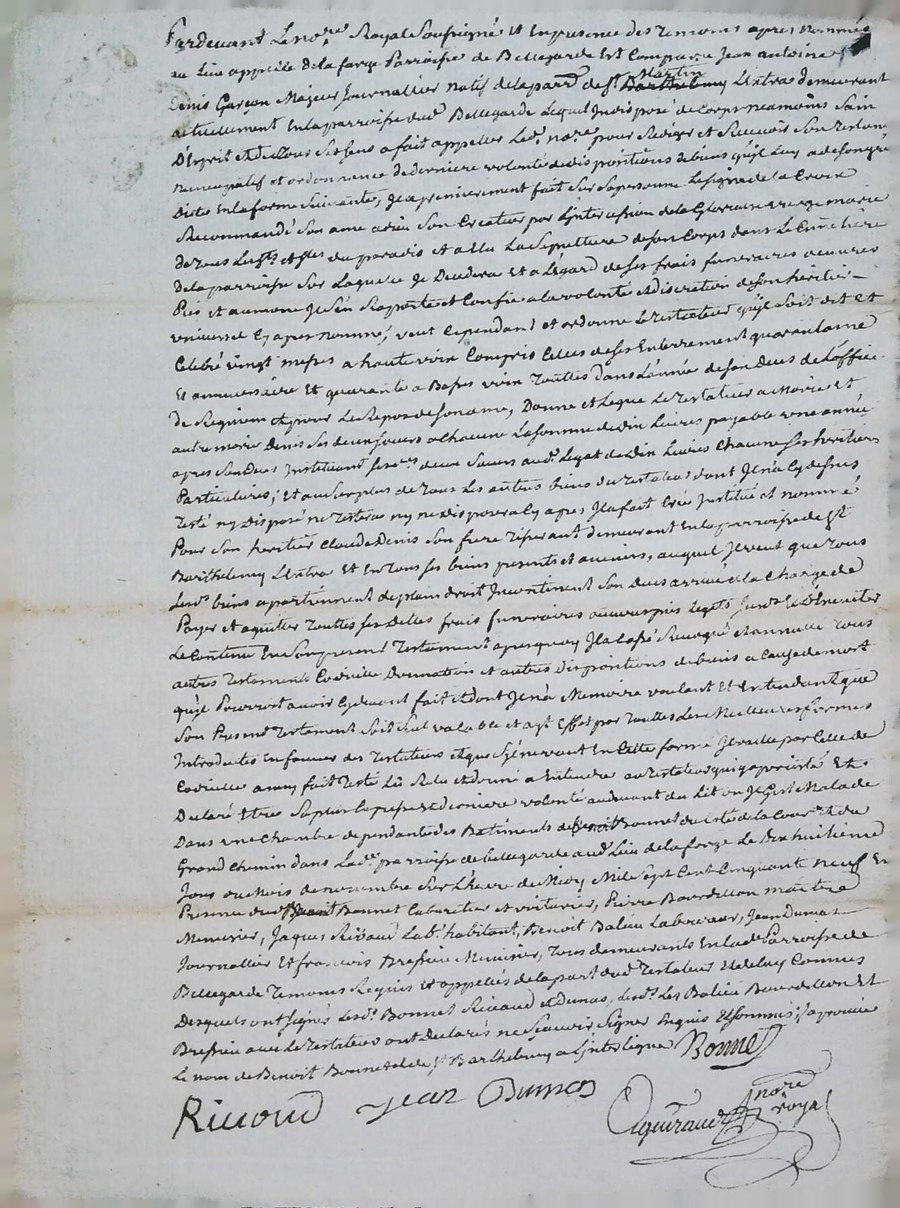 Pardevant Le no.re Royal Soussigné et En presence des Temoins apres Nommés
au Lieu appellé de la farge Parroisse de Bellegarde Est Comparu Jean antoine
Denis Garçon Majeur Journallier natif de la parr. de S.t Barthelemy Martin Lestra demeurant
actuellement En la parroisse dud. Bellegarde Lequel Indisposé de Corps neamoins Sain
D'Esprit Et de tous Ses Sens a fait appeller Led. no.re pour Rediger et Recevoir Son Testam.
nuncupatif et ordonnence de derniere volonté et dispositions de biens qu'il luy a de Son gré
Dictés En la forme Suivante, Il a premierement fait Sur Sa personne Le Signe de la Croix
Recommandé Son ame a dieu Son Createur par L'intercession de la Glorieuse vierge marie
de tous Les S.ts et S.tes du paradis et a Elu La Sepulture de Son Corps dans Le Cimetiere
de la parroisse Sur Laquelle Il Decedera Et a L'Egard de Ses frais funeraires oeuvres
Pies et aumone Il S'en Raporte et Confie a la volonté et discretion de Son heritier
universel Cy apres nommé, veut Cependant et ordonne Le testateur qu'il Soit dit Et
Celebré vingt messes a haute voix Compris Celles de Ses Enterrement quarantaine
Et anniversaire Et quarante a Basses voix Touttes dans L'année de Son Deces de L'office
De Requiem Et pour Le Repos de Son ame, Donne et Legue Le Testateur a Marie Et
autre marie Denis Ses deux Soeurs a Chacune La Somme de Dix Livres payable une année
apres Son Deces Instituant Ses deux Soeurs aud. Legat de Dix Livres Chacune Ses heritieres
Particulieres; Et au Surplus de Tous Les autres biens du Testateur dont Il n'a Cy dessus
Testé ny disposé ne Testera ny ne disposera Cy apres Il a fait Créé Institué et nommé
Pour Son heritier Claude Denis Son frere demeurant En la parroisse de S.t
Barthelemy Lestra Et En Tous Ses biens presents et avenirs, auquel Il veut que Tous
Lesd. biens apartiennent de plain droit Incontinent Son Deces arrivé a La Charge de
Payer et aquitter Touttes Ses Dettes frais funeraires oeuvres pies Legats
Le Contenu En Son present Testament apres quoy Il a Cassé Revoqué et annullé Tous
autres Testaments Codicille Donnation et autres dispositions de biens a Cause de mort
qu'il Pourroit avoir Cydevant fait Et dont Il n'a Memoire voulant Et Entendant que
Son Present Testament Soit Seul valable et ayt Effet par Touttes Les Meilleures formes
Introduites En faveur des Testateurs Et que S'il ne vaut En Cette forme Il vaille par Celle de
Codicille a moy fait Testé Lû Relu et donné a Entendre au Testateur qui y a persisté Et
Declaré Etre Sa pure Expresse Et derniere volonté au devant du Lit ou Il Gist Malade
Dans une Chambre dependante des Batiments de Benoit Bonnet du Coté de la Cour Et du
Grand Chemin dans Lad.te parroisse de bellegarde aud. Lieu de la farge Le Dix huitième
Jour du Mois de novembre Sur L'heure de Midy Mile Sept Cent Cinquante neuf En
Presence dud. Bonnet Cabaretier et voiturier, Pierre Bourdillon maitre
Menuisier, Jaques Rivaud Lab. habitant, Benoit Balieu Laboureur, Jean Dumas
Journallier Et francois Bressieu Meunier, Tous demeurants En lad.te Parroisse de
Bellegarde Temoins Requis Et appellés de la part dud. Testateur Et de luy Connus
Desquels ont Signés Lesd. Bonnet Rivaud Et dumas, Lesd. Les Balieu Bourdillon Et
Bressieu avec Le Testateur ont Declarés ne Scavoir Signer Enquis Et Sommés, Japrouve
Le nom de Benoit Bonnet et de S.t Barthelemy a L'interligne Bonnet
Rivaud Jean Dumas
no.re royal